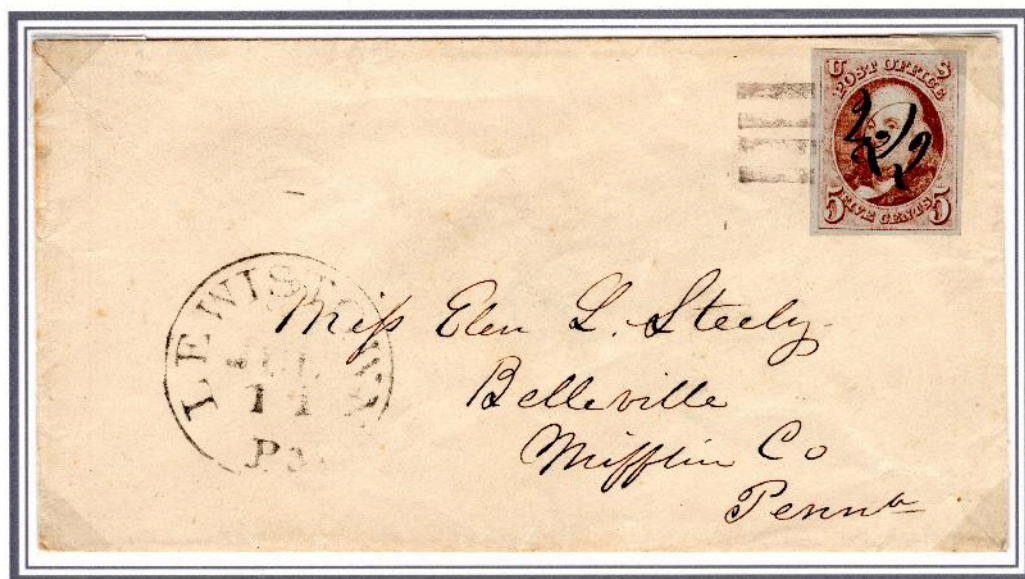 U S
POST OFFICE
5 FIVE CENTS 5
LEWISTOWN
JUL
Pa.
Miſs Elen L. Steely
Belleville
Mifflin Co
Penna